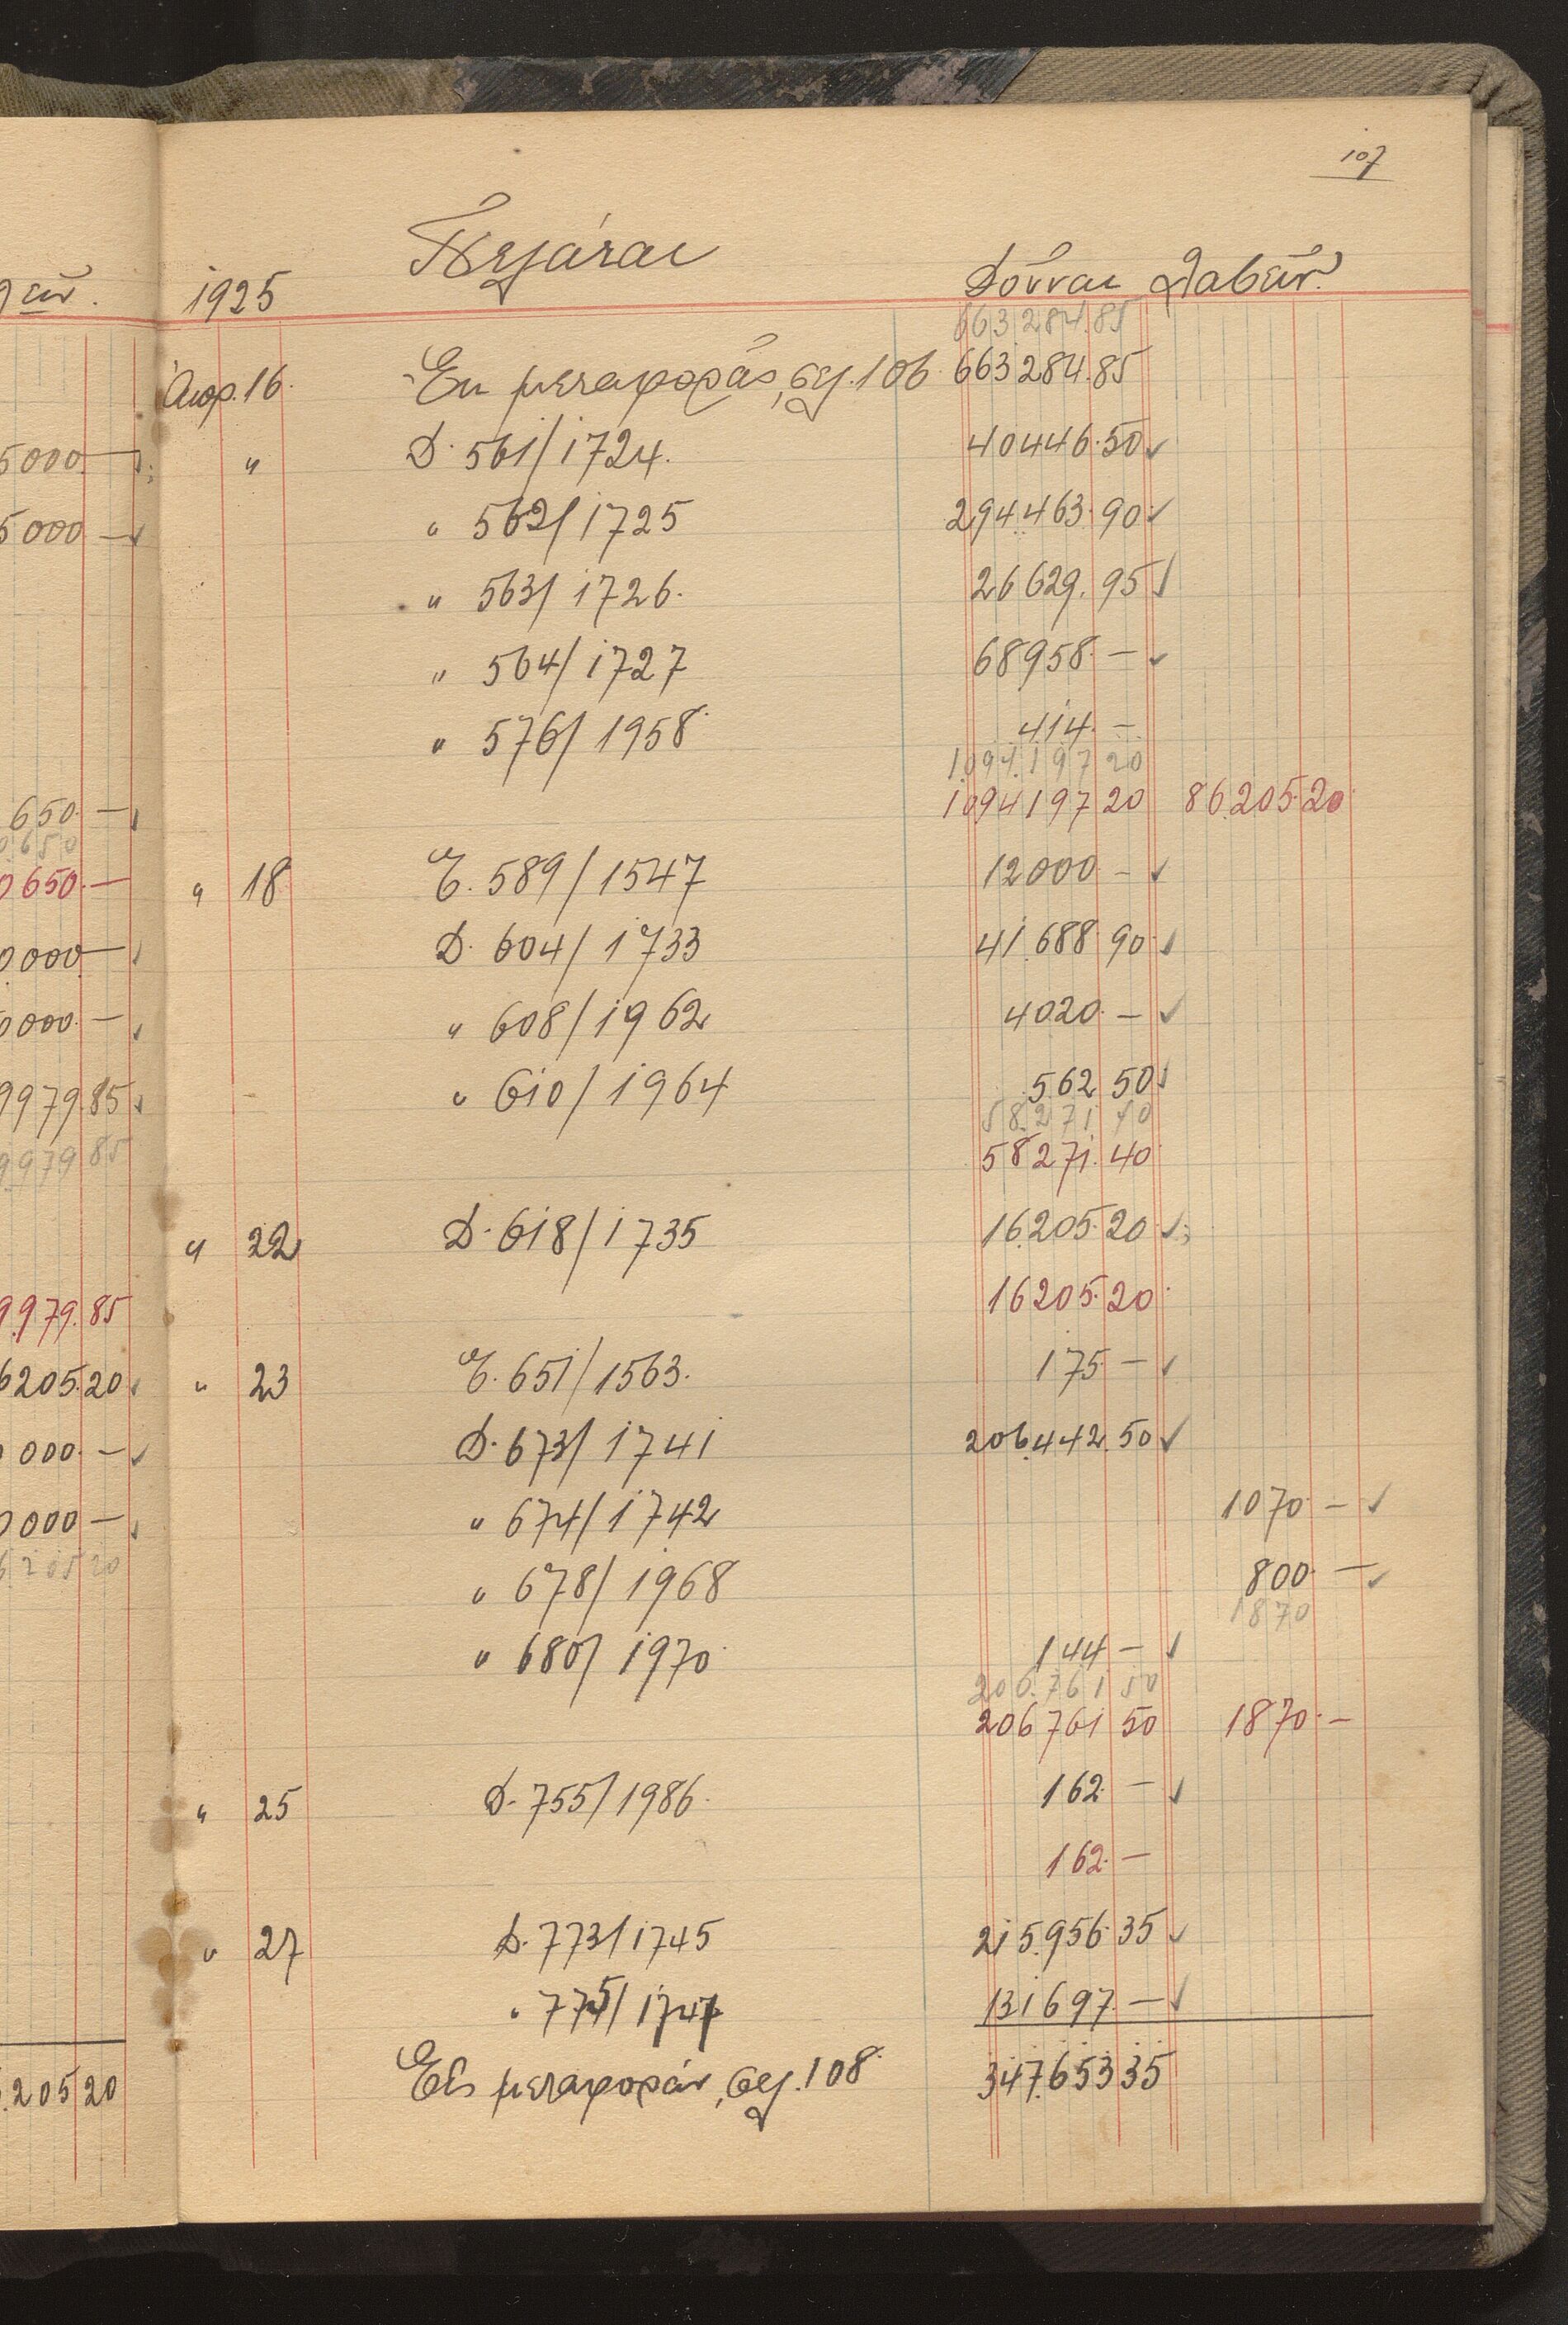 107
Πελάται
1925 Δοῦναι Λαβεῖν.
663 284.85
Απρ. 16. Ἐκ μεταφορᾶς, σελ. 106. 663 284.85
" D. 561/1724. 40446.50 ✓
" 562/1725 294.463.90 ✓
" 563/1726. 26629.95 ✓
" 564/1727 68958.— ✓
" 576/1958. 414.—
1.094.197 20
1.094197 20 86.205.20
" 18 E. 589/1547 12000 — ✓
D. 604/1733 41.688 90 ✓
" 608/1962 4020.— ✓
" 610/1964 562 50 ✓
58.271 40
58271.40
" 22 D. 618/1735 16.205.20 ✓
16205.20
" 23 E. 651/1563. 175 — ✓
D. 673/1741 206.442.50 ✓
" 674/1742 1070.— ✓
" 678/1968 800.— ✓
1870
" 680/1970. 144 — ✓
206.761 50
206761 50 1870.—
" 25 D. 755/1986. 162.— ✓
162.—
" 27 D. 773/1745 215.956.35 ✓
" 775/1747 131697.— ✓
Εἰς μεταφοράν, σελ. 108. 347.653 35
5000 —
5000 — ✓
650.— ✓
0.650
0650.—
0000 — ✓
0000.— ✓
9979.85 ✓
9.979 85
9.979.85
6205.20 ✓
000.— ✓
0000 — ✓
6.205 20
.205 20